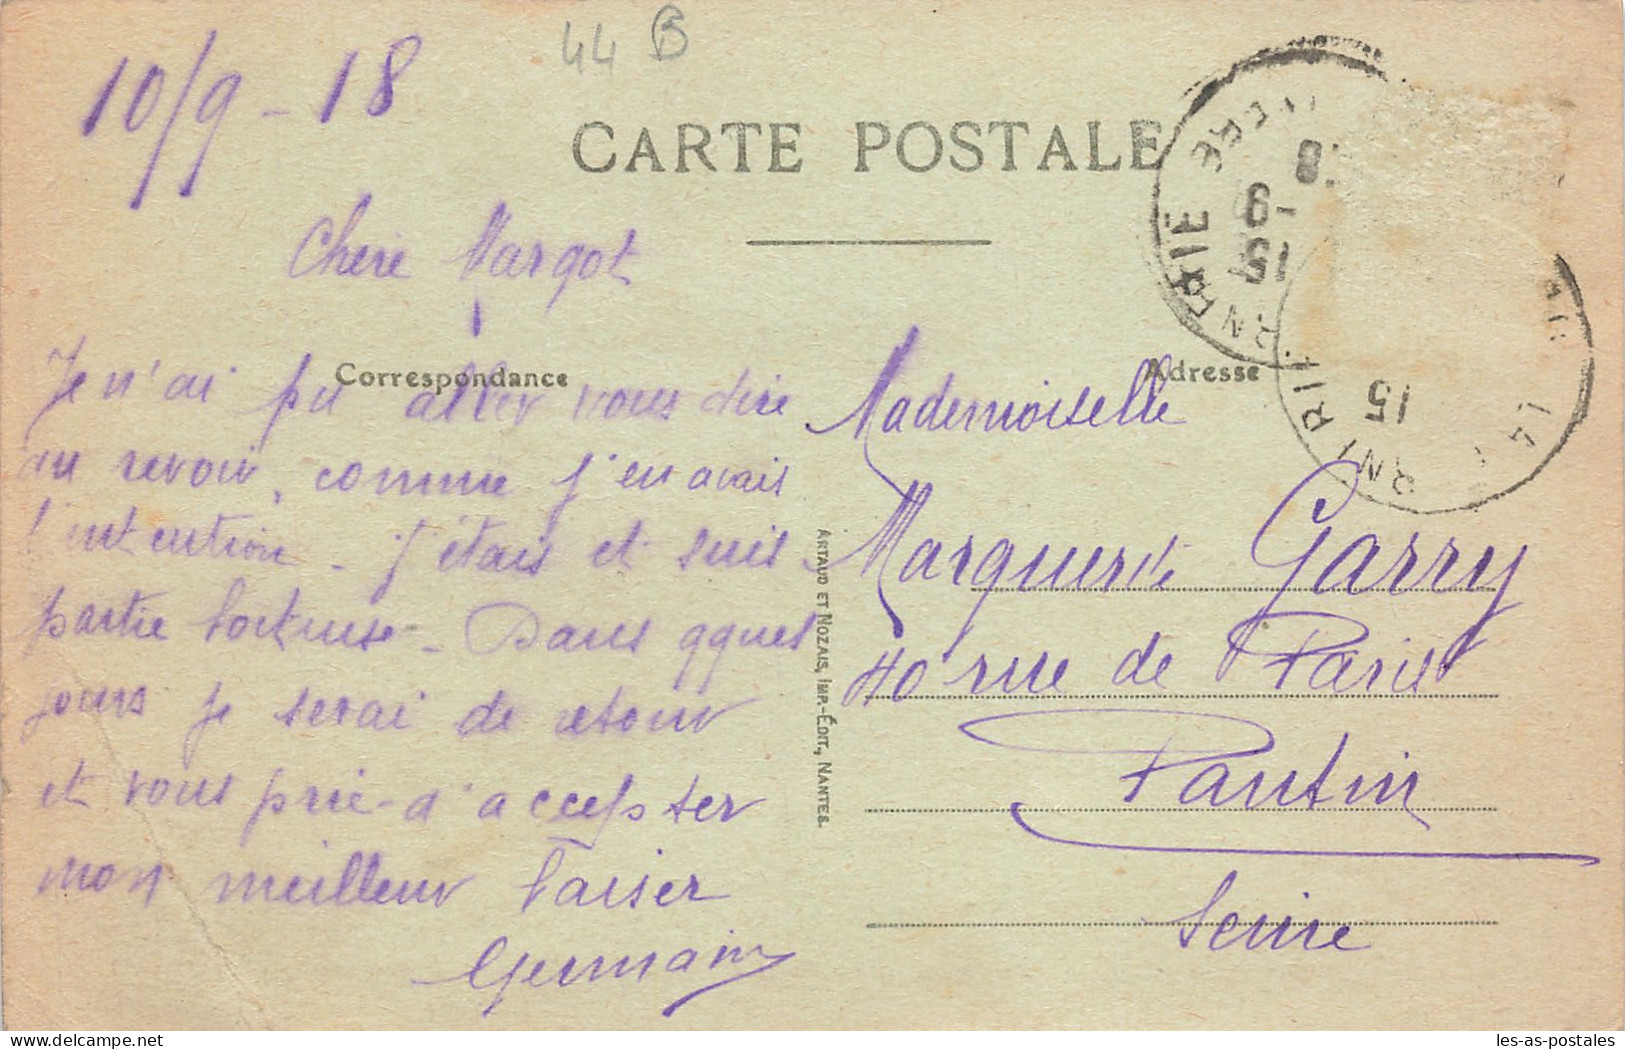 44 B
10/9 - 18
CARTE POSTALE
Chère Margot
Correspondance
Je n'ai pu aller vous dire
au revoir, comme j'en avais
l'intention - J'étais et suis
partie - Dans qques
jours je serai de retour
et vous prie d'accepter
mon meilleur baiser
Germain
ARTAUD ET NOZAIS, IMP.-ÉDIT., NANTES.
Adresse
Mademoiselle
Marguerite Garry
40 rue de Paris
Pantin
Seine
15 -9
15
les-as-postales